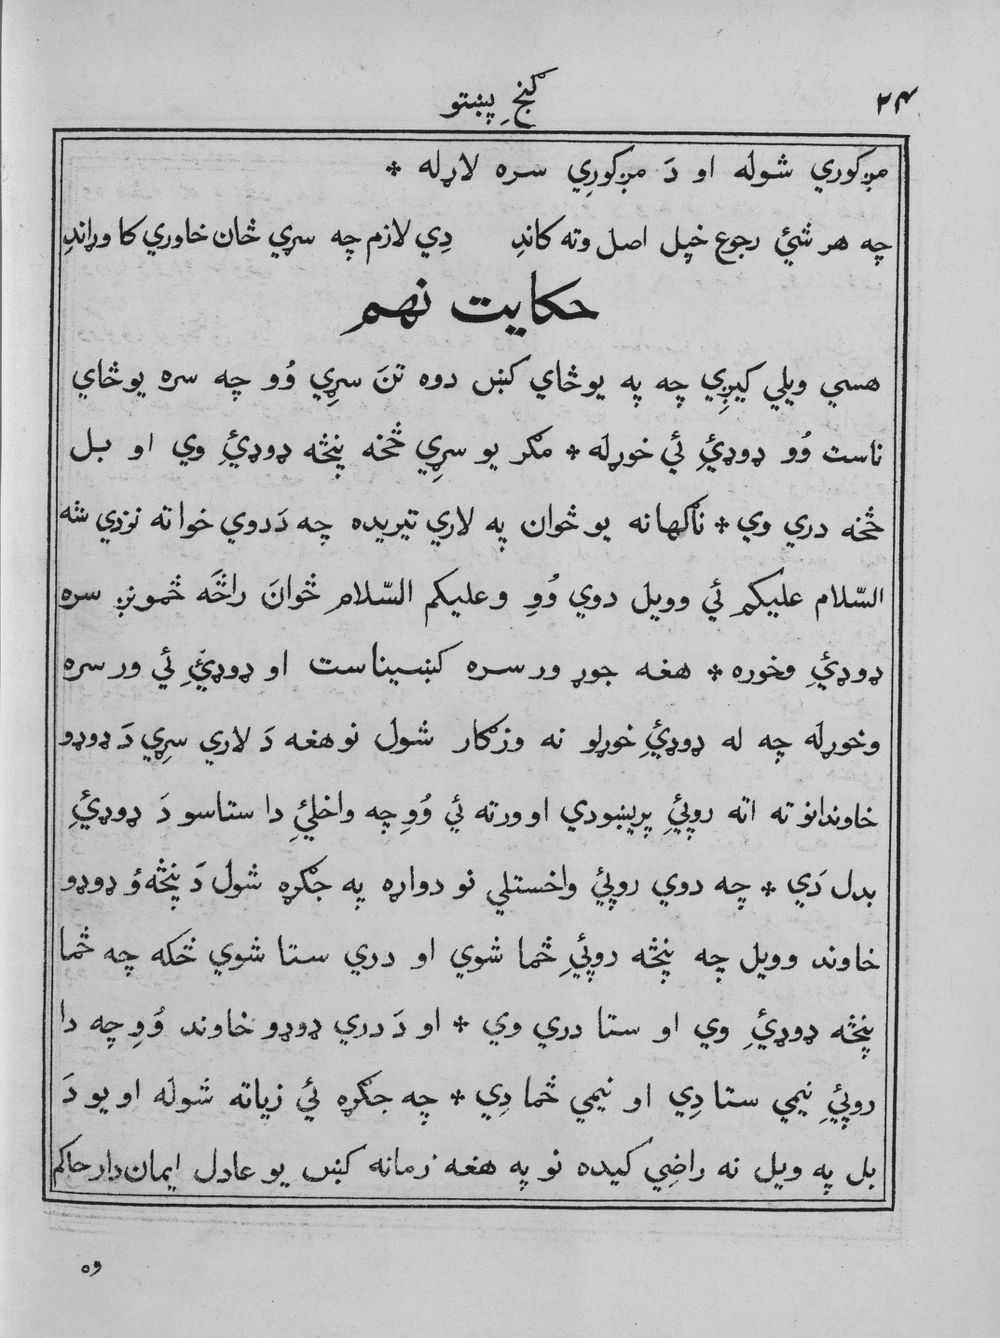 گنجِ پښتو
۲۴
مږکوري شوله او دَ مږکورِي سره لاړله *
چه هر شئ رجوع خپل اصل وته کاندِ دِي لازم چه سړي ځان خاوري کا وړاندِ
حکایت نهم
هسي ویلي کیږِي چه په یوځاي کښ دوه تنَ سړِي وُو چه سره یوځاي
ناست وُو ډوډئِ ئي خوړله * مګر یو سړِي څخه پنځه ډوډئِ وي او بل
څخه دري وي * ناګهانه یو ځوان په لاري تیریده چه دَدوي خوا ته نزدي شه
السّلام علیکم ئي وویل دوي وُوِ وعلیکم السّلام ځوانَ راځَه ځمونږ سره
ډوډئِ وخوره * هغه جوړ ورسره کښیناست او ډوډئِ ئي ورسره
وخوړله چه له ډوډئِ خوړلو نه وزګار شول نو هغه دَ لاري سړِي دَ ډوډو
خاوندانو ته اته روپئِ پریښودي او ورته ئي وُوِ چه واخلئِ دا ستاسو دَ ډوډئِ
بدل دَي * چه دوي روپئ واخستلي نو دواړه په جګړه شول دَ پنځهؤ ډوډو
خاوند وویل چه پنځه روپئِ ځما شوي او دري ستا شوي ځکه چه ځما
پنځه ډوډئِ وي او ستا دري وي * او دَ دري ډوډو خاوند وُوِ چه دا
روپئِ نیمي ستا دِي او نیمي ځما دِي * چه جګړه ئي زیاته شوله او یو دَ
بل په ویل نه راضِي کیده نو په هغه زمانه کښ یو عادل ایمان دار حاکم
وه